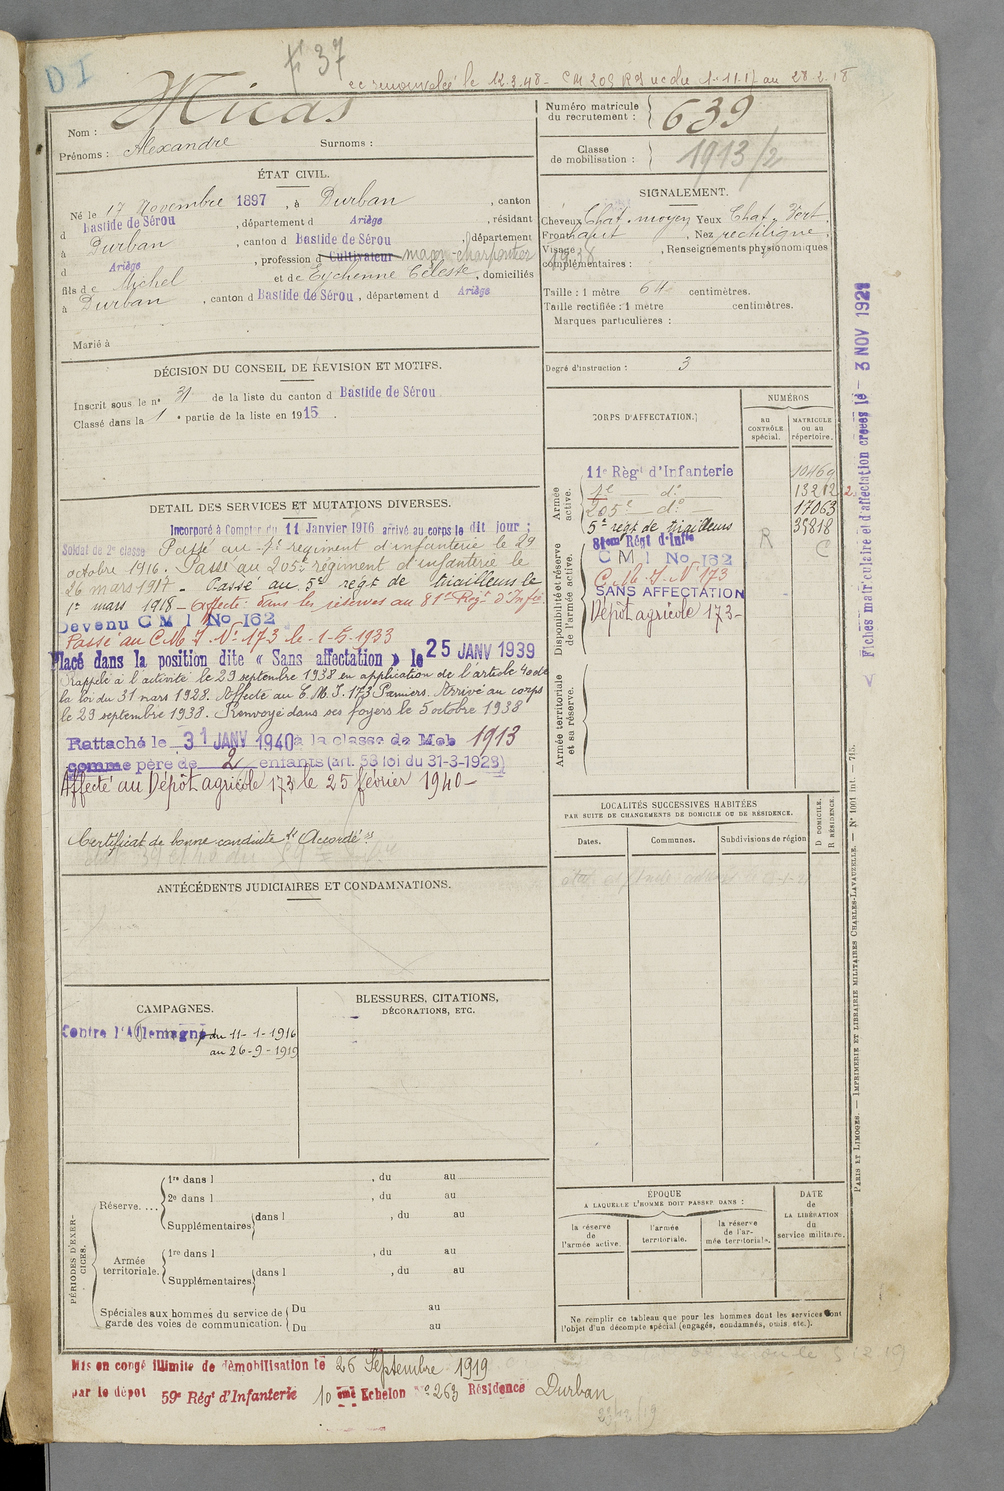 D I
37
ce renouvelée le 12.3.48 - CM 205 RI uc du 1.11.17 au 28.2.18
Nom : Micas
Prénoms : Alexandre Surnoms :
Numéro matricule du recrutement : 639
Classe de mobilisation : 1913/2
ÉTAT CIVIL.
Né le 17 Novembre 1897, à Durban, canton
d Bastide de Sérou, département d Ariège, résidant
à Durban, canton d Bastide de Sérou, département
d Ariège, profession d Cultivateur maçon-charpentier
fils de Michel et de Eychenne Céleste, domiciliés
à Durban, canton d Bastide de Sérou, département d Ariège
Marié à
SIGNALEMENT.
Cheveux Chat. moyen Yeux Chat. Vert.
Front haut, Nez rectiligne.
Visage, Renseignements physionomiques
complémentaires :
Taille : 1 mètre 64 centimètres.
Taille rectifiée : 1 mètre centimètres.
Marques particulières :
Degré d'instruction : 3
DÉCISION DU CONSEIL DE REVISION ET MOTIFS.
Inscrit sous le n° 31 de la liste du canton d Bastide de Sérou
Classé dans la 1° partie de la liste en 1915.
CORPS D'AFFECTATION.
NUMÉROS
AU CONTRÔLE spécial.
MATRICULE ou au répertoire.
Armée active.
11e Régt d'Infanterie 10469
4e do 13212
205e do 17063
5e régt de tirailleurs 39818
R C
Disponibilité et réserve de l'armée active.
81ème Régt d'Infie
C M I No 162
C.M.I. N° 173
SANS AFFECTATION
Dépôt agricole 173-
Armée territoriale et sa réserve.
DETAIL DES SERVICES ET MUTATIONS DIVERSES.
Incorporé à Compter du 11 Janvier 1916 arrivé au corps le dit jour ;
Soldat de 2e classe Passé au 4e régiment d'infanterie le 29
octobre 1916. Passé au 205e régiment d'infanterie le
26 mars 1917. Passé au 5e régt de tirailleurs le
1er mars 1918 - Affecté dans les réserves au 81e Régt d'Infie
Devenu C M I No 162
Passé au C.M.I. N° 173 le 1-5-1933
Placé dans la position dite « Sans affectation » le 25 JANV 1939
Rappelé à l'activité le 29 septembre 1938 en application de l'article 40 de
la loi du 31 mars 1928. Affecté au C.M.I. 173 Pamiers. Arrivé au corps
le 29 septembre 1938. Renvoyé dans ses foyers le 5 octobre 1938
Rattaché le 31 JANV 1940 à la classe de Mob 1913
comme père de 2 enfants (art. 58 loi du 31-3-1928)
Affecté au Dépôt agricole 173 le 25 février 1940 -
Certificat de bonne conduite "Accordé"
LOCALITÉS SUCCESSIVES HABITÉES
PAR SUITE DE CHANGEMENTS DE DOMICILE OU DE RÉSIDENCE.
Dates. Communes. Subdivisions de région
D DOMICILE.
R RÉSIDENCE.
ANTÉCÉDENTS JUDICIAIRES ET CONDAMNATIONS.
CAMPAGNES.
Contre l'Allemagne du 11-1-1916
au 26-9-1919
BLESSURES, CITATIONS,
DÉCORATIONS, ETC.
PÉRIODES D'EXERCICES.
Réserve.... 1re dans l , du au
2e dans l , du au
Supplémentaires dans l , du au
Armée territoriale. 1re dans l , du au
Supplémentaires dans l , du au
Spéciales aux hommes du service de garde des voies de communication. Du au
Du au
ÉPOQUE
A LAQUELLE L'HOMME DOIT PASSER DANS :
la réserve de l'armée active.
l'armée territoriale.
la réserve de l'armée territoriale.
DATE de LA LIBÉRATION du service militaire.
Ne remplir ce tableau que pour les hommes dont les services sont
l'objet d'un décompte spécial (engagés, condamnés, omis, etc.).
Mis en congé illimité de démobilisation le 26 Septembre 1919
par le dépôt 59e Régt d'Infanterie 10 ème Echelon n° 263 Résidence Durban
Fiches matriculaire et d'affectation créées le 3 NOV 1921
PARIS ET LIMOGES. — IMPRIMERIE ET LIBRAIRIE MILITAIRES CHARLES-LAVAUZELLE. — N° 1001 int. — 715.